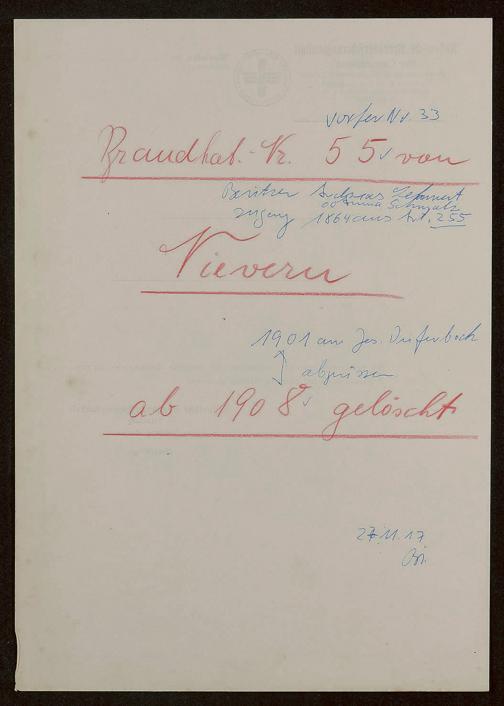 vorher Nr. 33
Brandkat.-Nr. 55 von
Besitzer Andreas Lehnert
oo Anna Schmalz
Zugang 1864 aus Art. 255
Nievern
1901 an Jos. Diefenbach
abgerissen
ab 1908 gelöscht
27.11.17